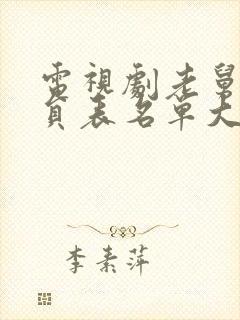 電視劇老舅
員表名單大
李素萍